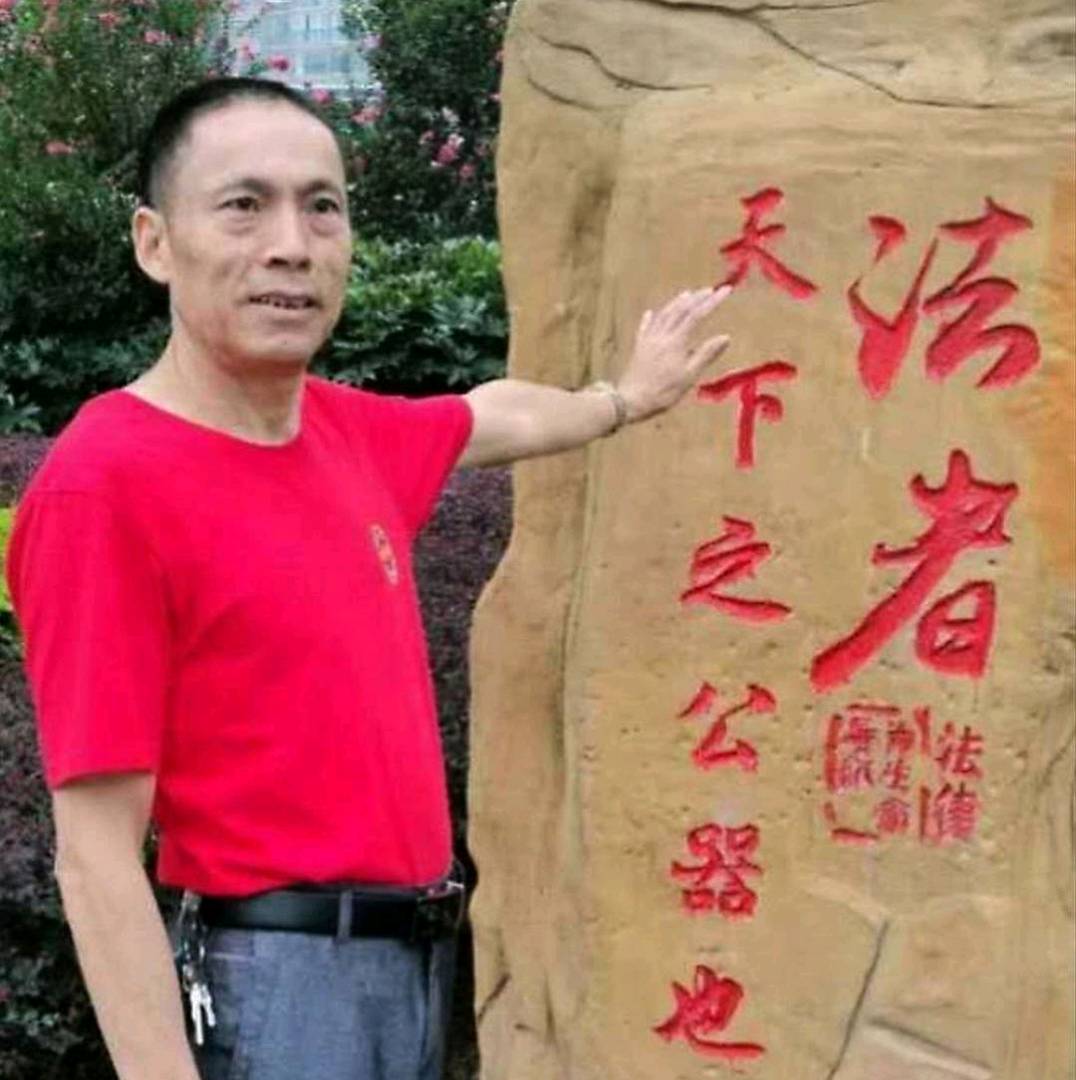 法者
天下之公器也
法德